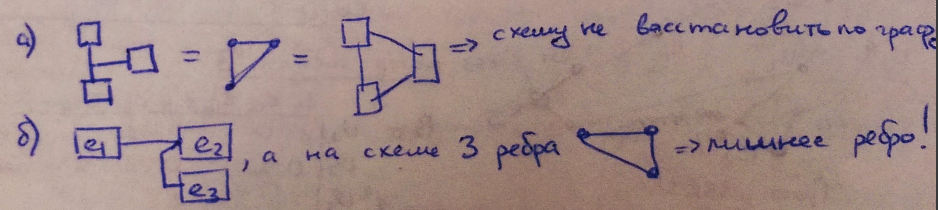 а) = = => схему не восстановить по графу
б) e1 e2 e3 , а на схеме 3 ребра => лишнее ребро!